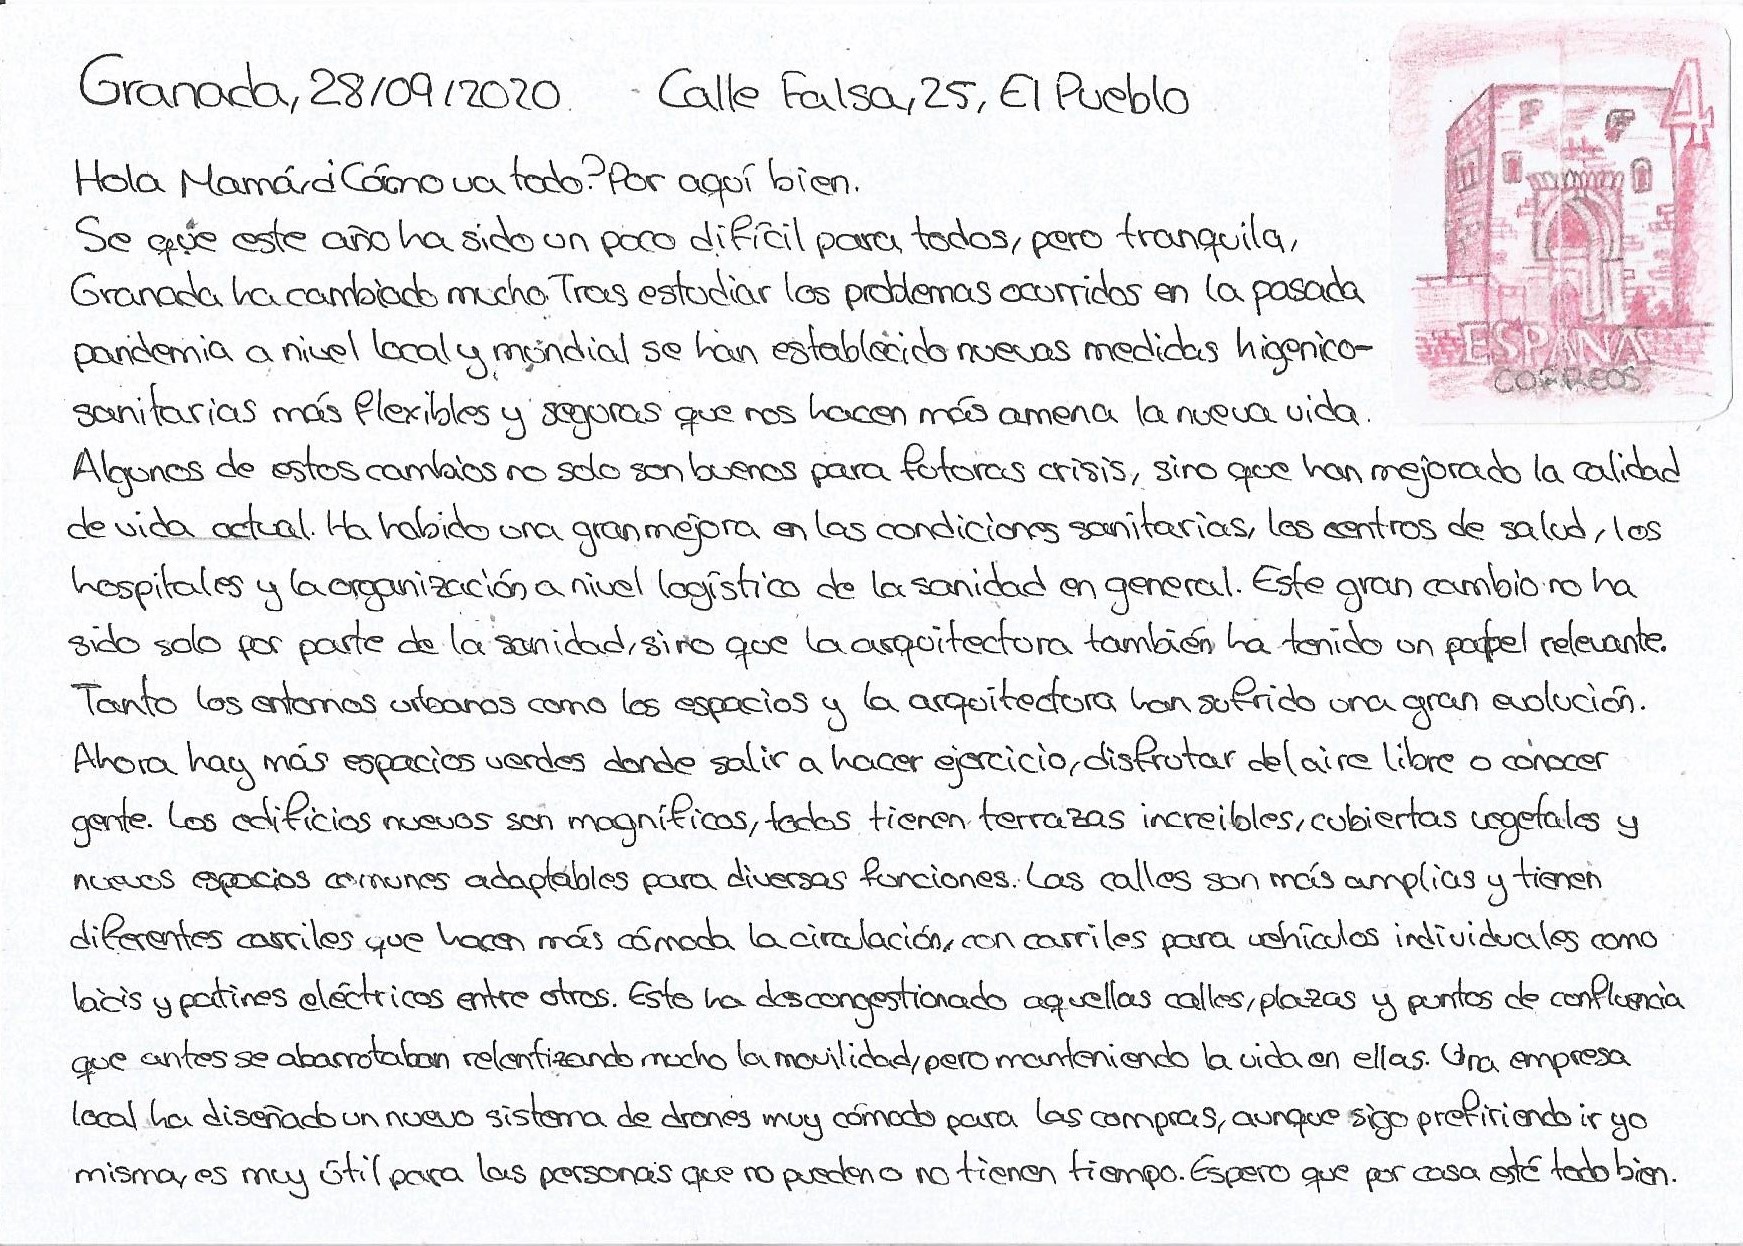 Granada, 28/09/2020 Calle Falsa, 25, El Pueblo
4
Hola Mamá, ¿Cómo va todo? Por aquí bien.
Se que este año ha sido un poco difícil para todos, pero tranquila,
Granada ha cambiado mucho. Tras estudiar los problemas ocurridos en la pasada
pandemia a nivel local y mundial se han establecido nuevas medidas higenico-
ESPAÑA
CORREOS
sanitarias más flexibles y seguras que nos hacen más amena la nueva vida.
Algunos de estos cambios no solo son buenos para futuras crisis, sino que han mejorado la calidad
de vida actual. Ha habido una gran mejora en las condiciones sanitarias, los centros de salud, los
hospitales y la organización a nivel logístico de la sanidad en general. Este gran cambio no ha
sido solo por parte de la sanidad, sino que la arquitectura también ha tenido un papel relevante.
Tanto los entornos urbanos como los espacios y la arquitectura han sufrido una gran evolución.
Ahora hay más espacios verdes donde salir a hacer ejercicio, disfrutar del aire libre o conocer
gente. Los edificios nuevos son magníficos, todos tienen terrazas increibles, cubiertas vegetales y
nuevos espacios comunes adaptables para diversas funciones. Las calles son más amplias y tienen
diferentes carriles que hacen más cómoda la circulación, con carriles para vehículos individuales como
bicis y patines eléctricos entre otros. Esto ha descongestionado aquellas calles, plazas y puntos de confluencia
que antes se abarrotaban relentizando mucho la movilidad, pero manteniendo la vida en ellas. Una empresa
local ha diseñado un nuevo sistema de drones muy cómodo para las compras, aunque sigo prefiriendo ir yo
misma, es muy útil para las personas que no pueden o no tienen tiempo. Espero que por casa esté todo bien.